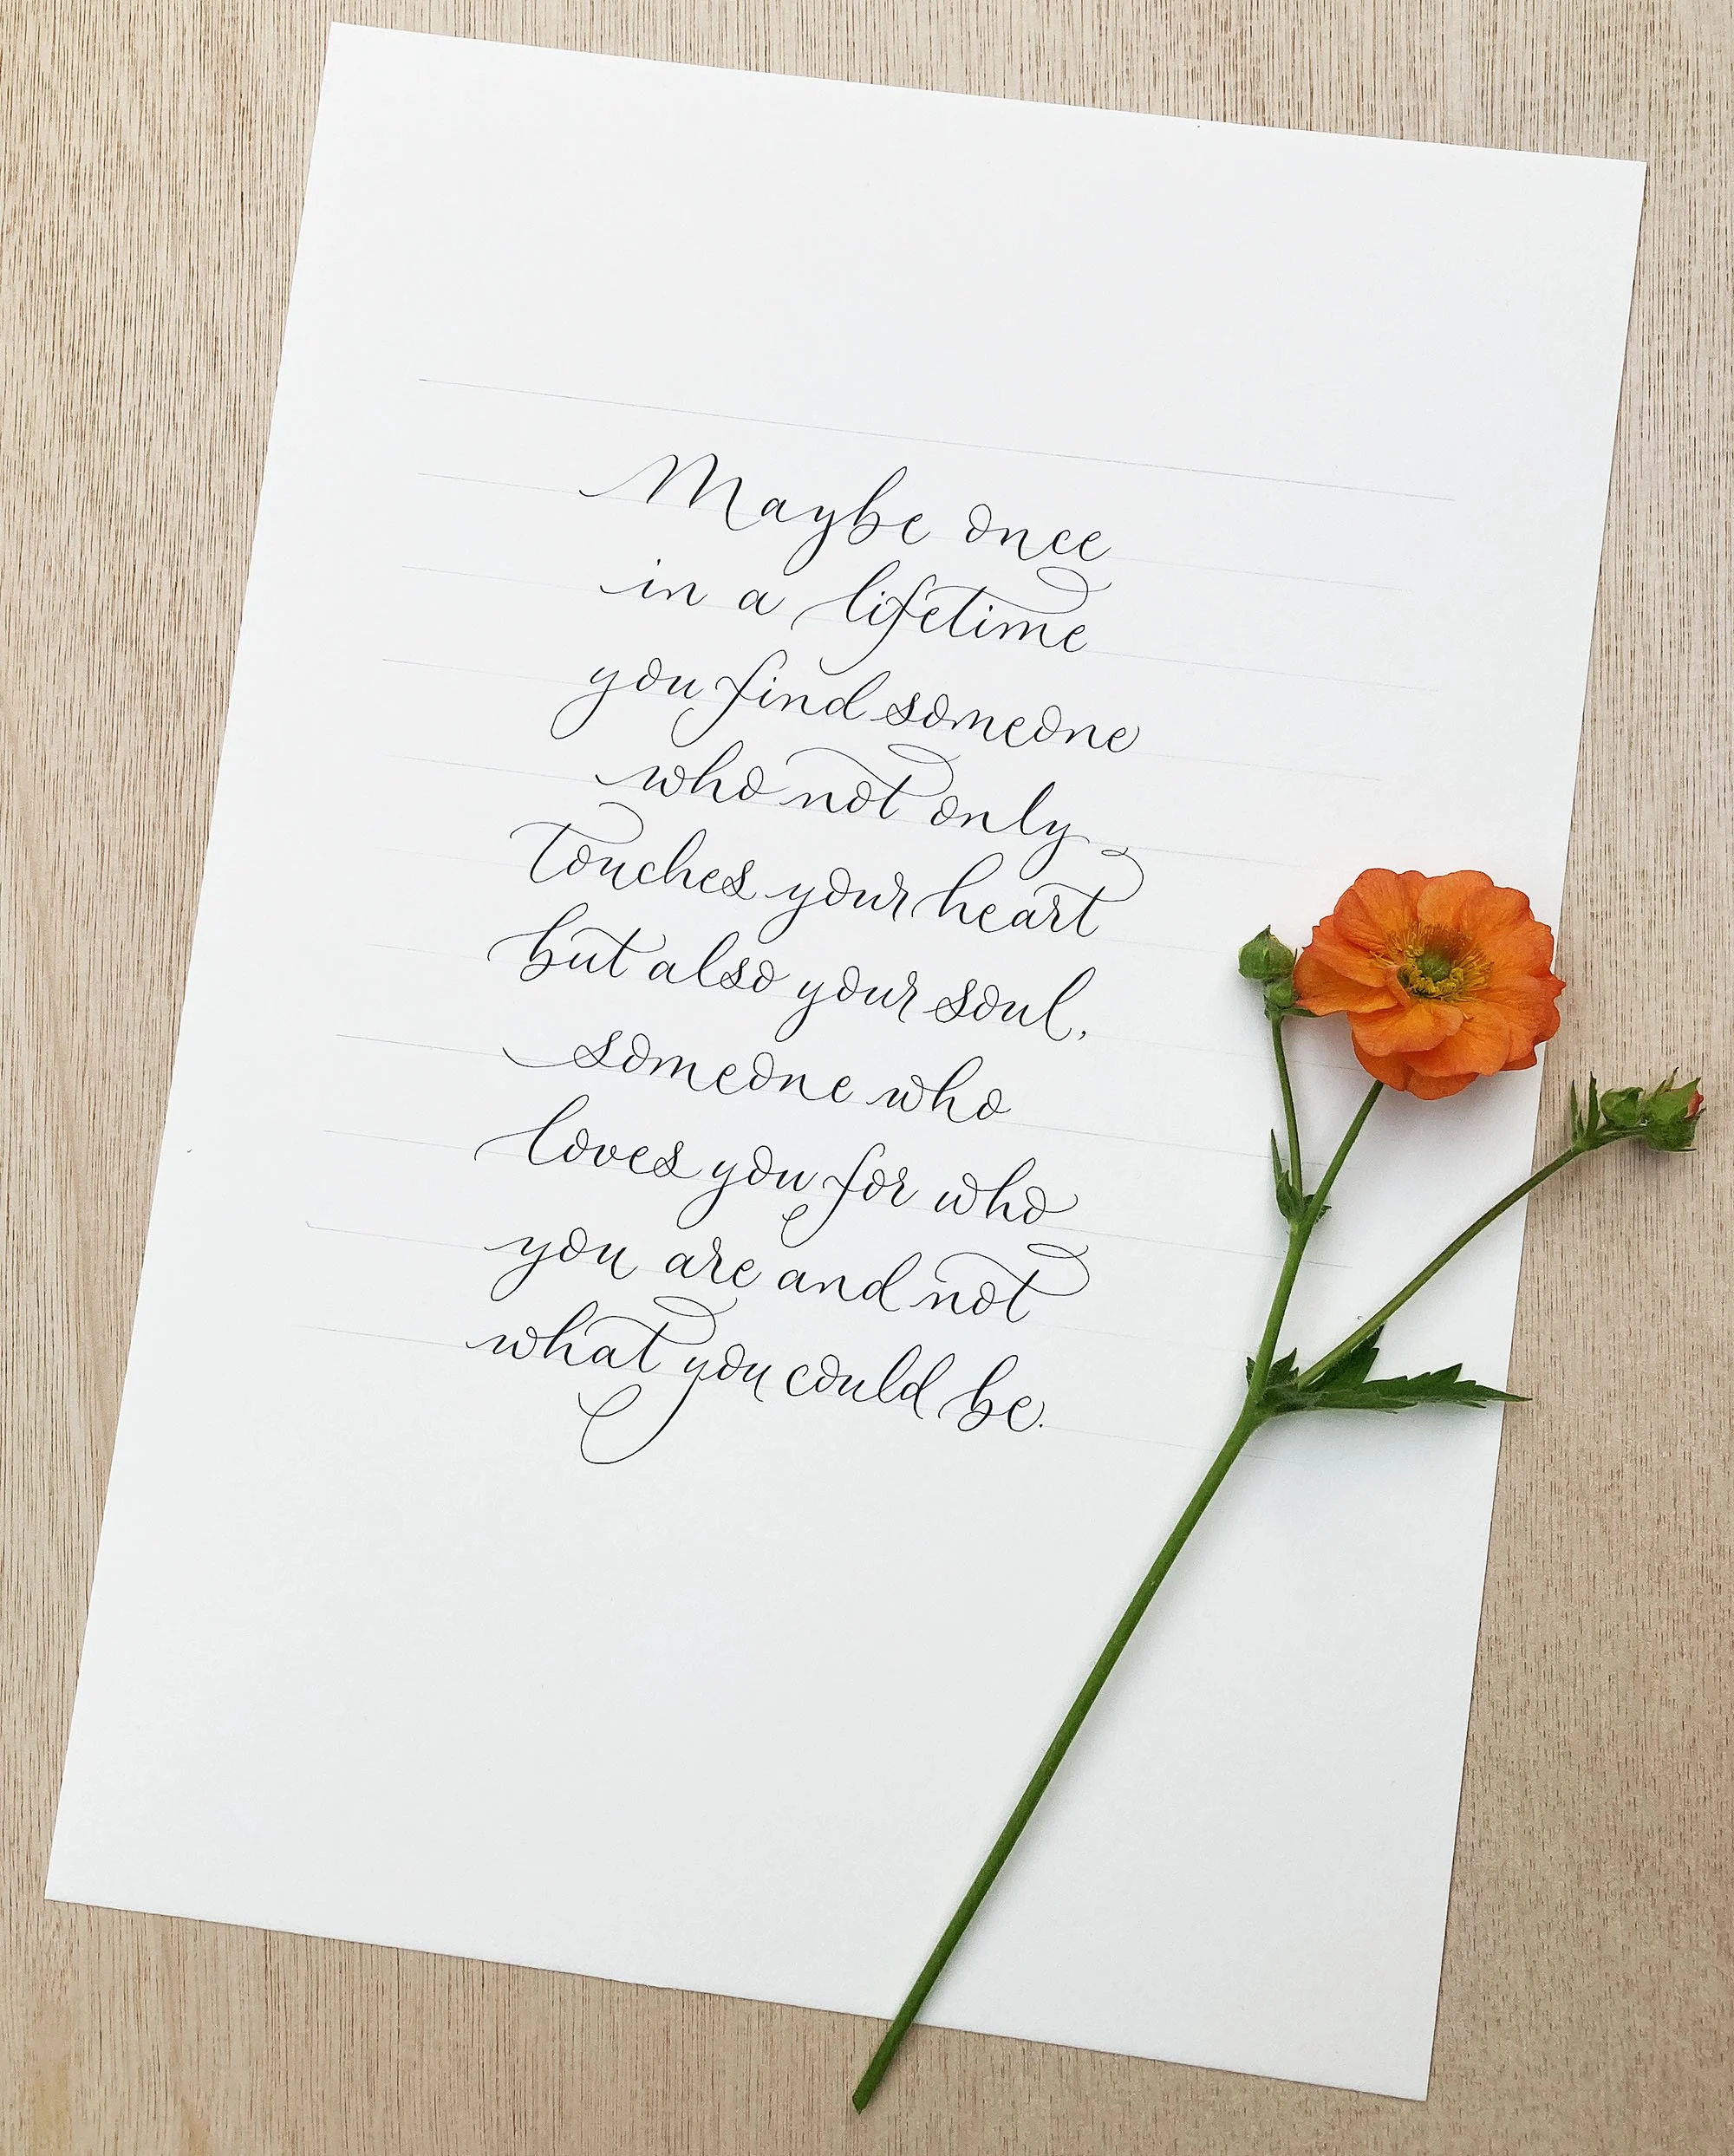 Maybe once
in a lifetime
you find someone
who not only
touches your heart
but also your soul,
someone who
loves you for who
you are and not
what you could be.